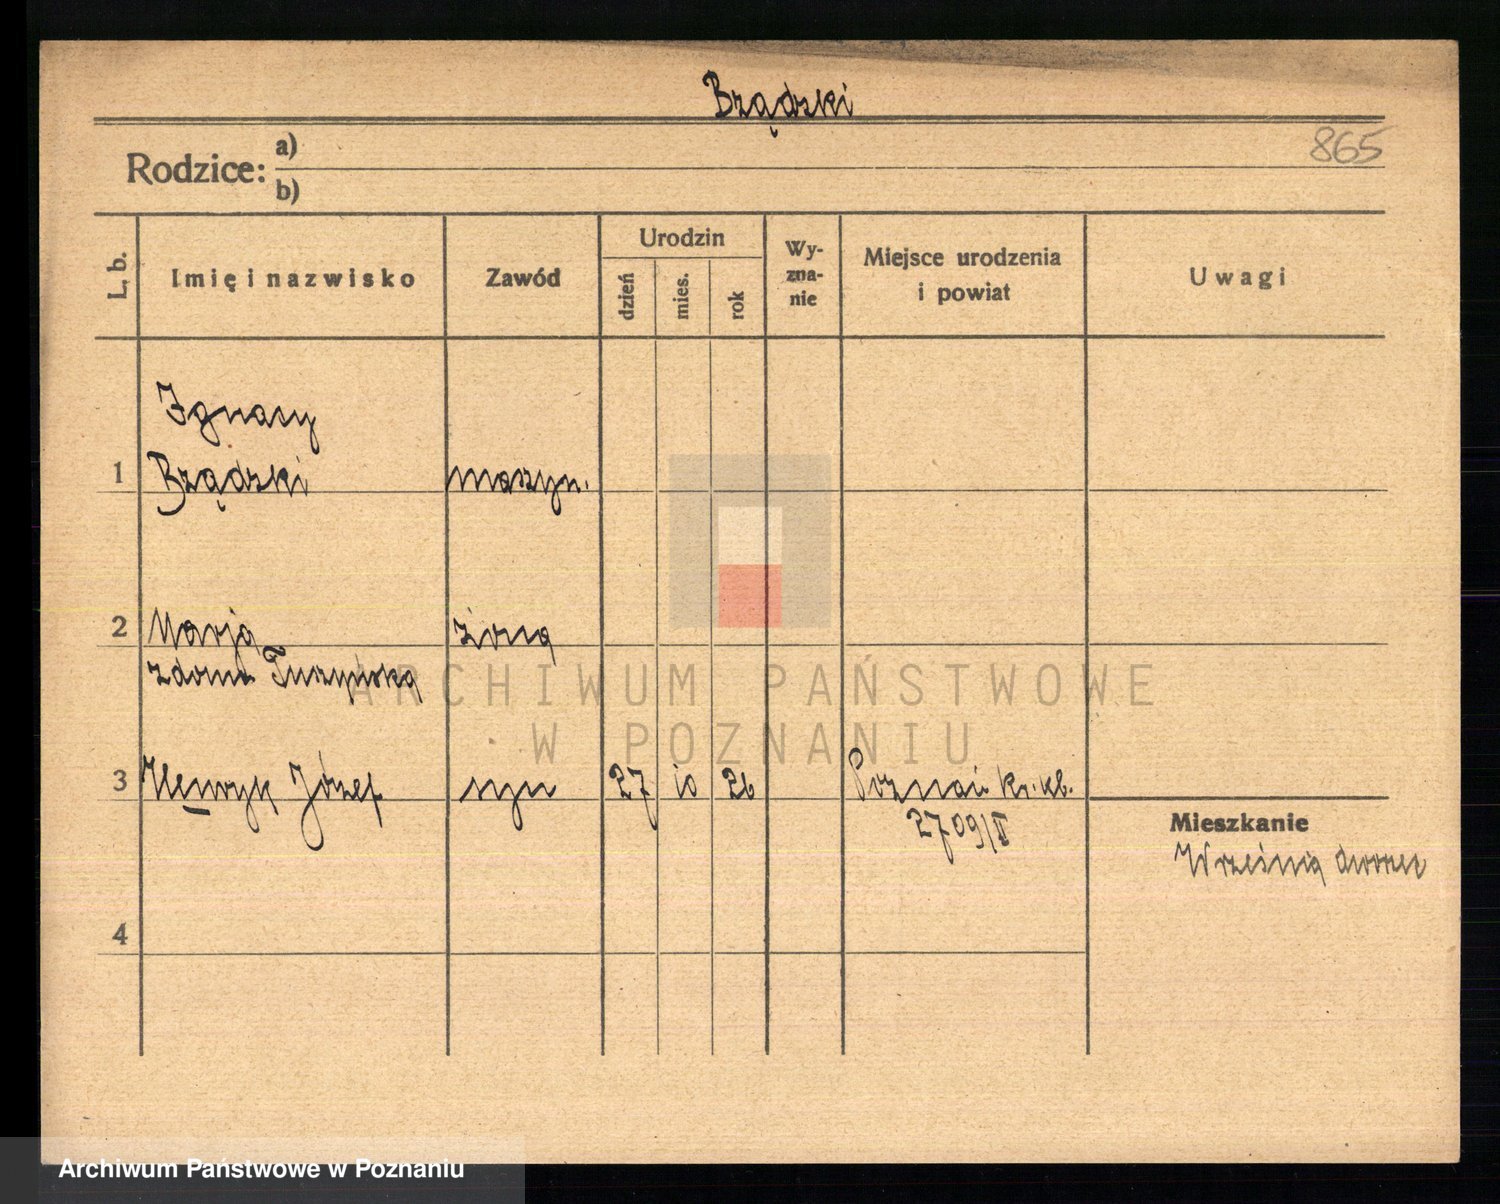 Brządzki
865
Rodzice: a)
b)
L. b.
Imię i nazwisko
Zawód
Urodzin
dzień
mies.
rok
Wy-
zna-
nie
Miejsce urodzenia
i powiat
Uwagi
Ignacy
1 Brządzki maszyn.
2 Marja żona
z domu
3 Henryk Józef syn 27 10 26 Poznań kr. kb.
2709/I
Mieszkanie
Września dworzec
4
ARCHIWUM PAŃSTWOWE
W POZNANIU
Archiwum Państwowe w Poznaniu